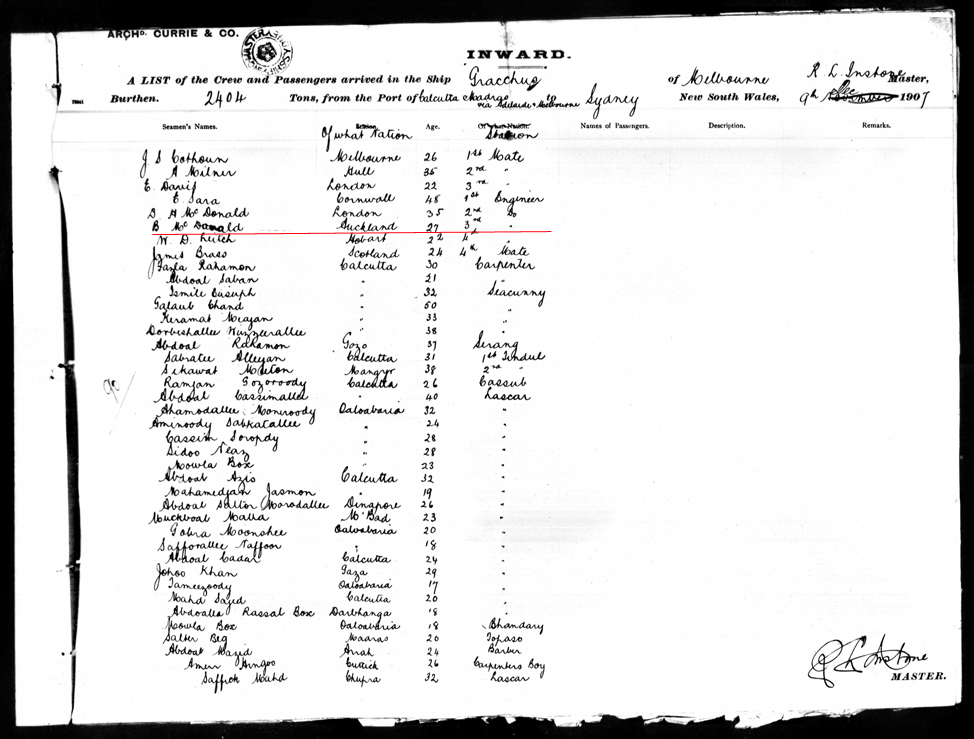 ARCHD. CURRIE & CO.
INWARD.
A LIST of the Crew and Passengers arrived in the Ship Gracchus of Melbourne R. L. Instone Master,
Burthen. 2404 Tons, from the Port of Calcutta Madras via Adelaide & Melbourne to Sydney New South Wales, 9th Dec 1907
Seamen's Names. Of what Nation Age. Station Names of Passengers. Description. Remarks.
J S Colhoun Melbourne 26 1st Mate
A Milner Hull 35 2nd "
E. Davis London 22 3rd "
E. Sara Cornwall 48 1st Engineer
D. A McDonald London 35 2nd Do
B McDonald Auckland 27 3rd "
W. D. Leitch Hobart 22 4th "
James Brass Scotland 24 4th Mate
Fazla Rahamon Calcutta 30 Carpenter
Abdoal Saban " 21 "
Ismile Eusuph " 32 Seacunny
Golaub Chand " 50
Keramat Meajan " 33 "
Dorbeshallee Wuzzeerallee " 38 "
Abdoal Rahamon Gozo 37 Serang
Sabratee Alleyan Calcutta 31 1st Tindul
Sikawat Mangryr 38 2nd "
Ramjan Gozoroody Calcutta 26 Cassub
Abdoal Cassimallee " 40 Lascar
Ahamodallee Moniroody Oaloabaria 32 "
Aminoody Sabkatallee " 24 "
Cassim Soropdy " 28 "
Sidoo Neaz " 28 "
Mowla Box " 23 "
Abdoal Azis Calcutta 32 "
Mahamedjan Jasmon " 19 "
Abdoal Salton Morodallee Dinapore 26 "
Muckboat Malla M'Bad 23 "
Gobra Moonshee Oaloabaria 20 "
Safforallee Naffoor " 18 "
Abdoal Cadar Calcutta 24 "
Johoo Khan Gaza 29 "
Tameezoody Oaloabaria 17 "
Mahd Sajed Calcutta 20 "
Abdoalla Rassal Box Darbhanga 18 "
Mowla Box Oaloabaria 18 Bhandary
Salter Beg 20 Topaso
Abdoal Mazid Arrah 24 Barber
Ameer Hingoo Cuttick 26 Carpenters Boy
Saffrok Mahd Chupra 32 Lascar
90
R L Instone
MASTER.